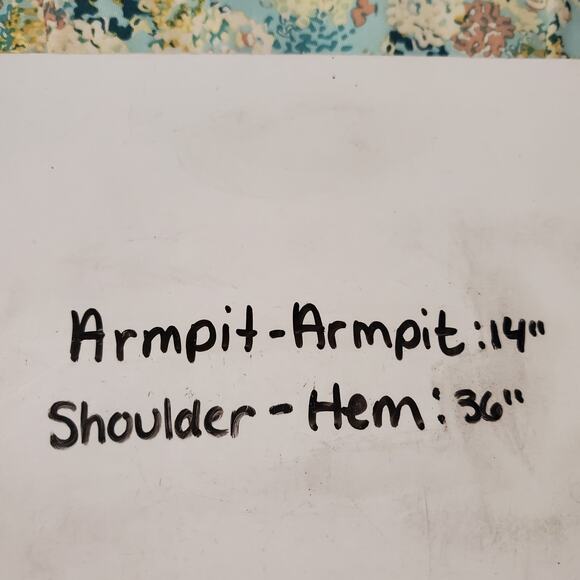 Armpit-Armpit:14"
Shoulder-Hem:36"